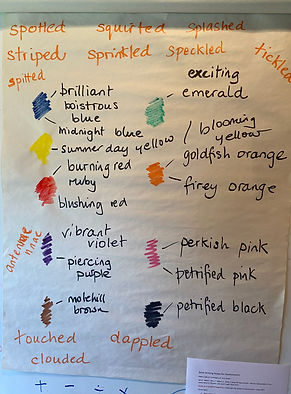 spotted squirted splashed
striped sprinkled speckled tickled
spitted
exciting
brilliant
boistrous
blue
emerald
midnight blue
blooming
yellow
summer day yellow
goldfish orange
burning red
ruby
firey orange
blushing red
antennae
vibrant
violet
perkish pink
piercing
purple
petrified pink
molehill
brown
petrified black
touched dappled
clouded
+ - ÷ x